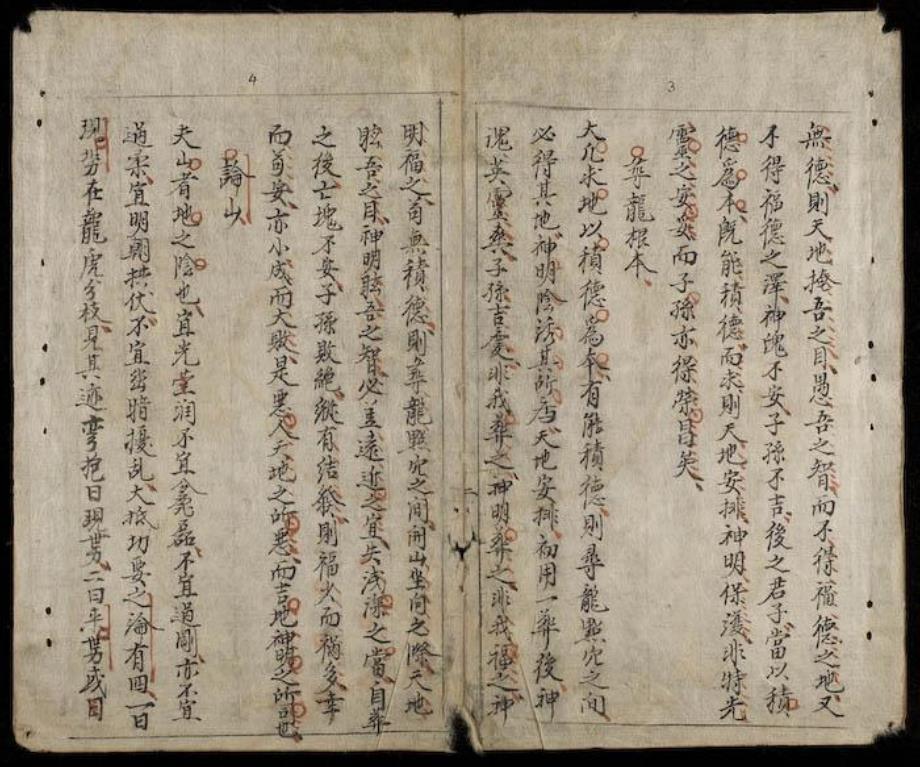 3
無德則天地掩吾之目愚吾之智而不得福德之地又
不得福德之澤神魄不安子孫不吉後之君子當以積
德爲本既能積德而求則天地安排神明保護非特先
靈之安妥而子孫亦得榮昌矣
尋龍根本
大凡求地以積德爲本有能積德則尋龍點穴之間
必得其地神明陰誘其所店天地安排初用一葬後神
魂英靈與子孫吉慶非我葬之神明葬之非我福之神
4
明福之苟無積德則尋龍點穴之間開山坐向之際天地
眩吾之目神明眩吾之智必昱遠近之宜失浅深之當自葬
之後亡塊不安子孫敗絶縱有結發則福少而禍多幸
而苟安亦小成而大敗是悪人天地之所悪而吉地神明之所
論山
夫山者地之陰也宜光堂润不宜磊不宜過剛亦不宜
過柔宜明朗拱伏不宜幽暗擾乱大抵功要之論有四一曰
現勞在龍虎分枝見其迹彎抱曰現势二曰平勢或目